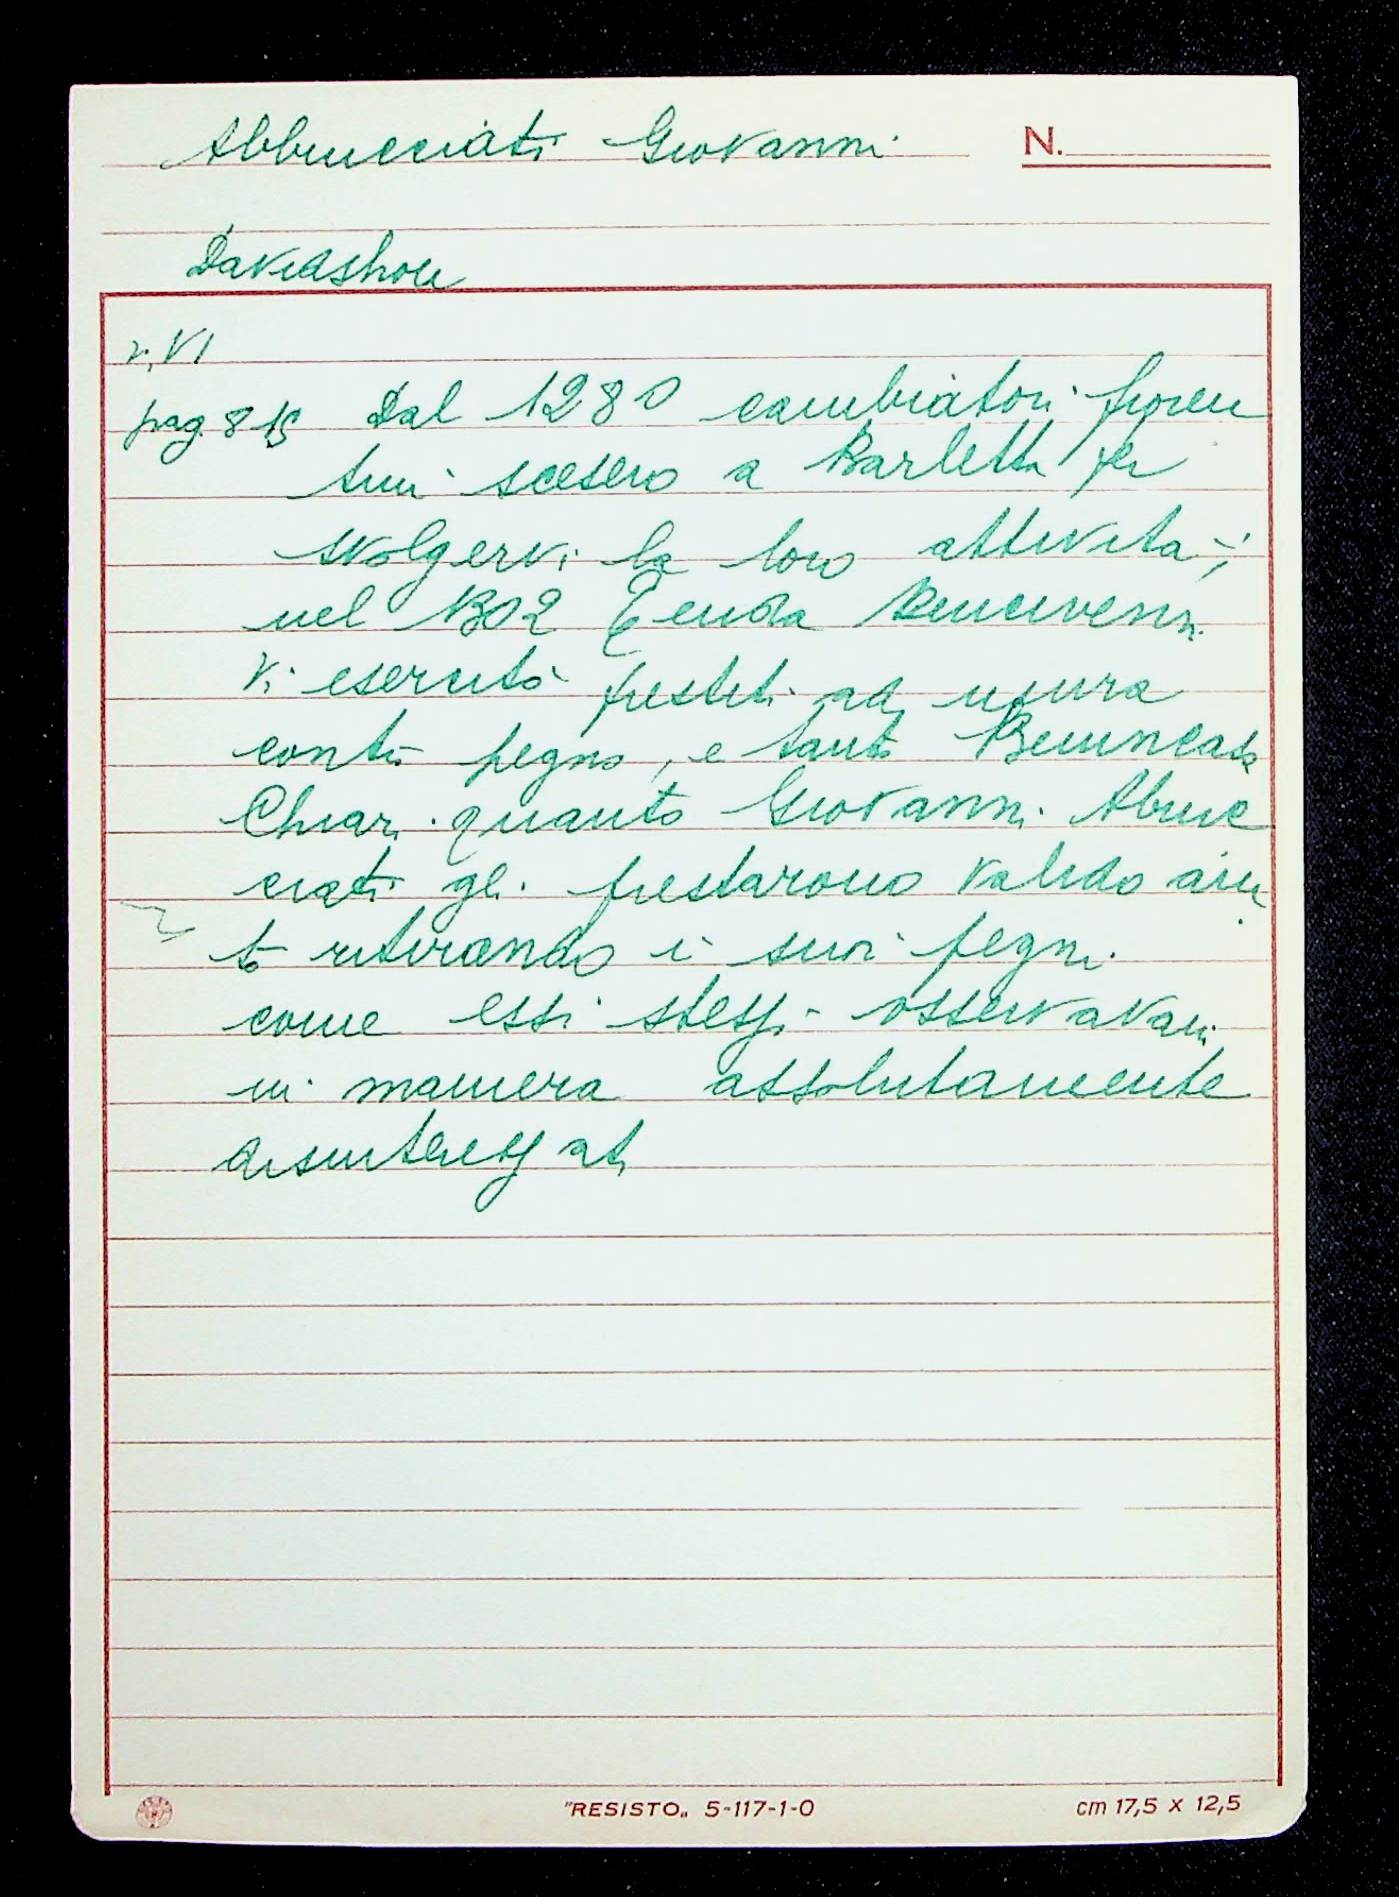 Abbrucciati Giovanni
N.
Davidshon
v. VI
pag. 815 Dal 1280 cambiatori fioren
tini scesero a Barletta per
svolgervi la loro attività;
nel 1302 Tenda Bencivenni
vi esercitò prestiti ad usura
contro pegno, e tanto Benincasa
Chiari quanto Giovanni Abruc
ciati gli prestarono valido aiu
to ritirando i suoi pegni
come essi stessi osservavan
in maniera assolutamente
disinteressati
"RESISTO„ 5-117-1-0
cm 17,5 x 12,5